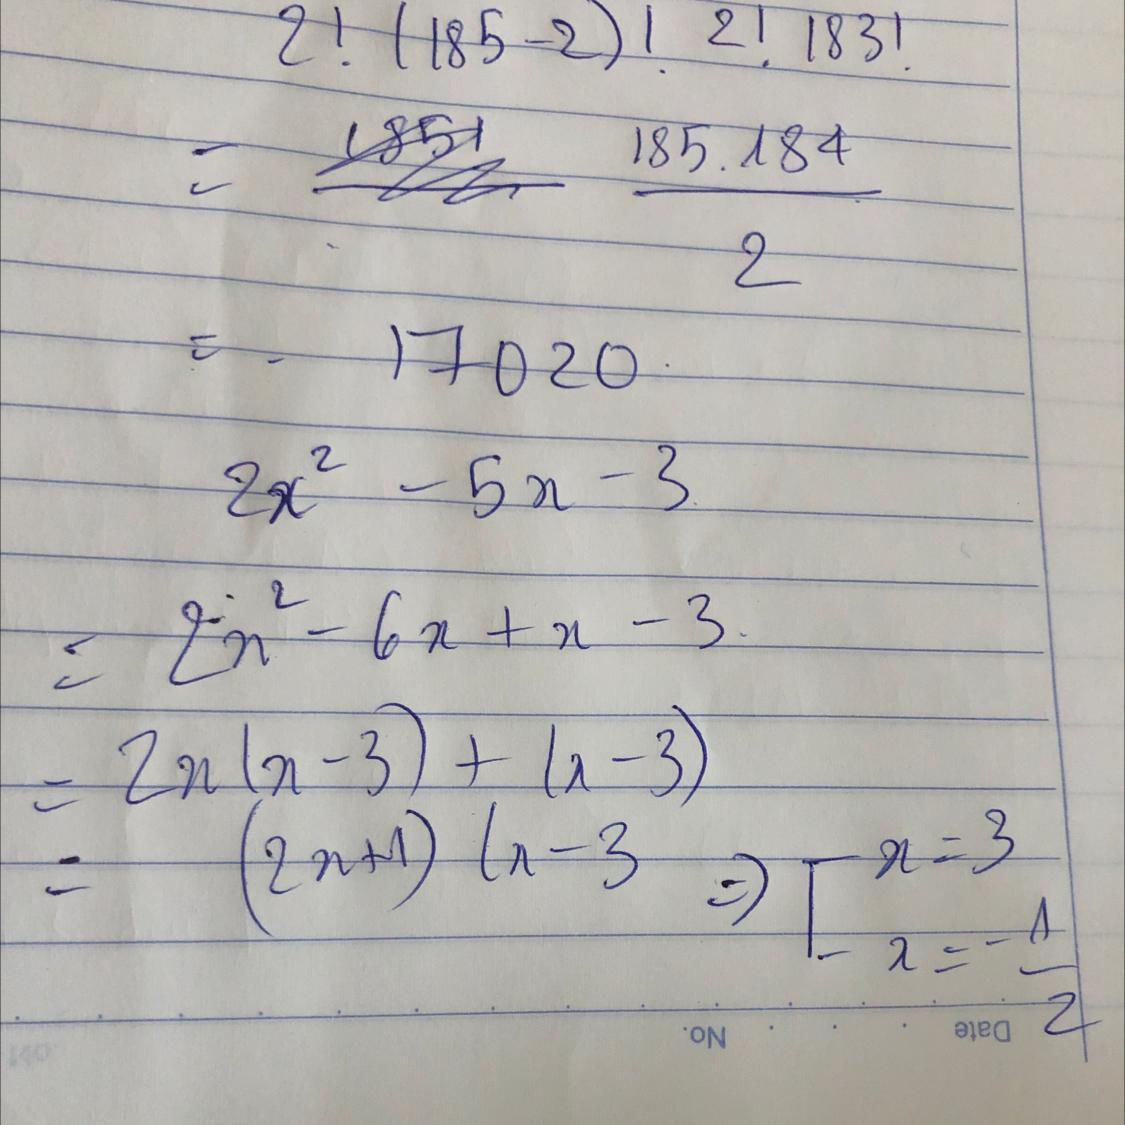 2! (185-2)! 2! 183!
= 185.184
2
= 17020.
2x² - 5x - 3
= 2x² - 6x + x - 3.
= 2x(x-3) + (x-3)
= (2x+1) (x-3 => [ x = 3
x = - 1
2
No. Date
No.